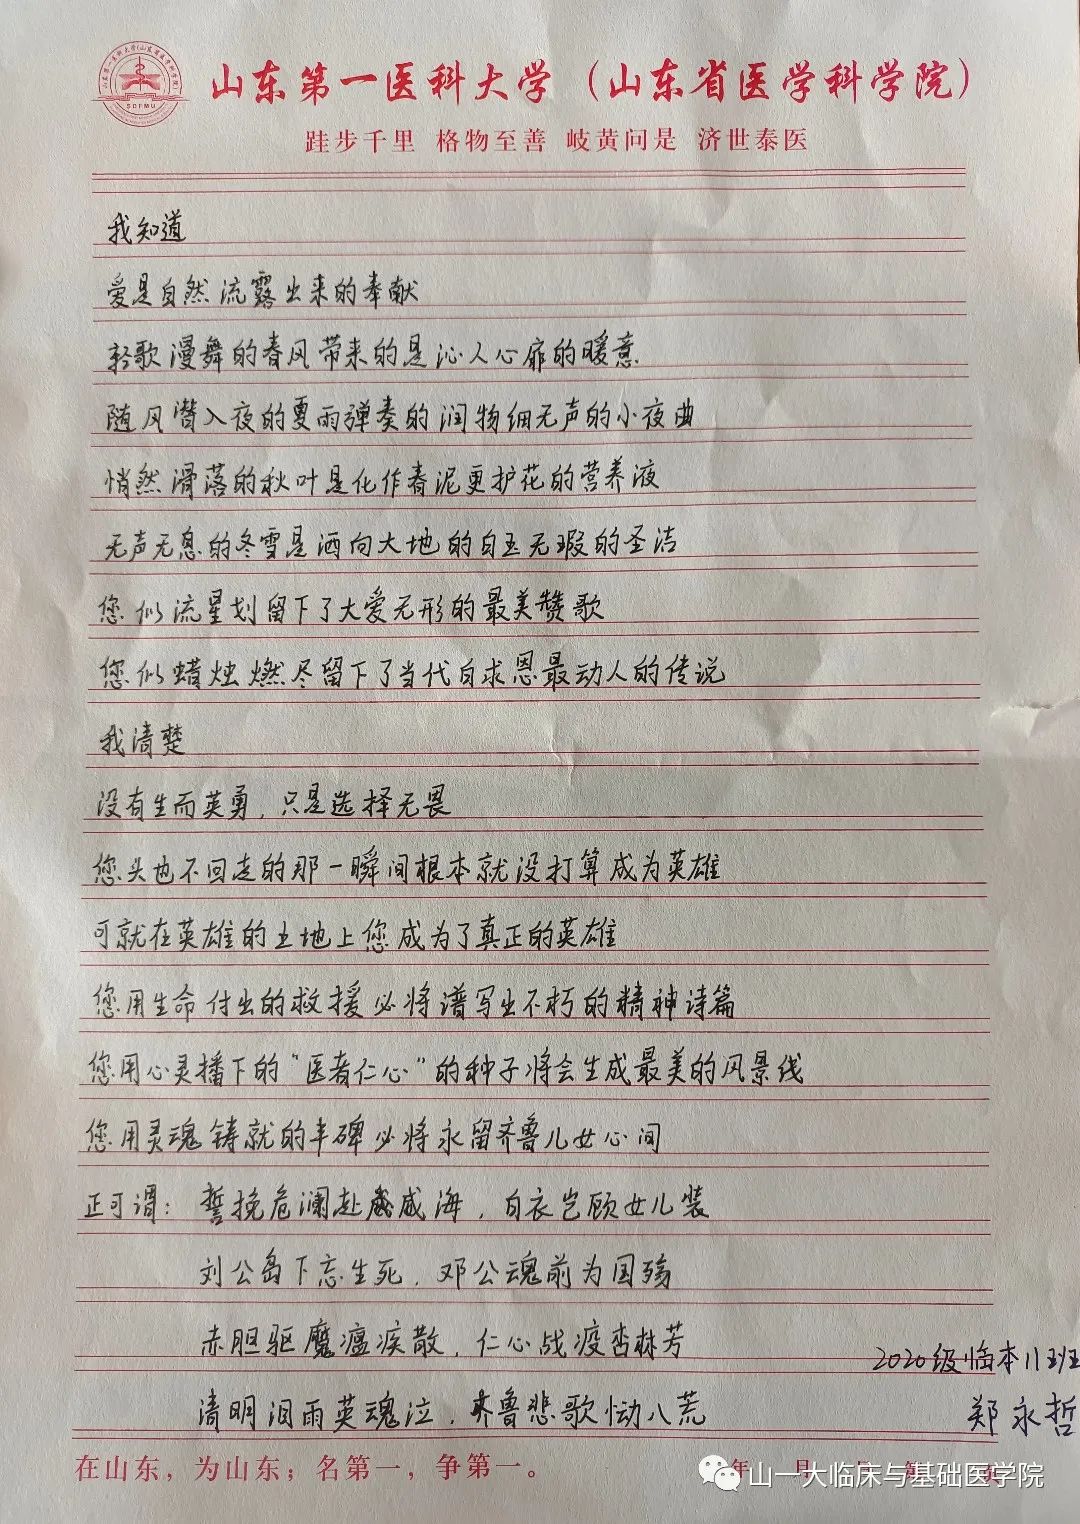 山东第一医科大学（山东省医学科学院）
SDFMU
跬步千里 格物至善 岐黄问是 济世泰医
我知道
爱是自然流露出来的奉献
轻歌漫舞的春风带来的是沁人心扉的暖意
随风潜入夜的夏雨弹奏的润物细无声的小夜曲
悄然滑落的秋叶是化作春泥更护花的营养液
无声无息的冬雪是洒向大地的白玉无瑕的圣洁
您似流星划留下了大爱无形的最美赞歌
您似蜡烛燃尽留下了当代白求恩最动人的传说
我清楚
没有生而英勇，只是选择无畏
您头也不回走的那一瞬间根本就没打算成为英雄
可就在英雄的土地上您成为了真正的英雄
您用生命付出的救援必将谱写出不朽的精神诗篇
您用心灵播下的“医者仁心”的种子将会生成最美的风景线
您用灵魂铸就的丰碑必将永留齐鲁儿女心间
正可谓：誓挽危澜赴威海，白衣岂顾女儿装
刘公岛下忘生死，邓公魂前为国殇
赤胆驱魔瘟疾散，仁心战疫杏林芳
2020级临本11班
清明泪雨英魂泣，齐鲁悲歌恸八荒
郑永哲
在山东，为山东；名第一，争第一。
年 月
山一大临床与基础医学院